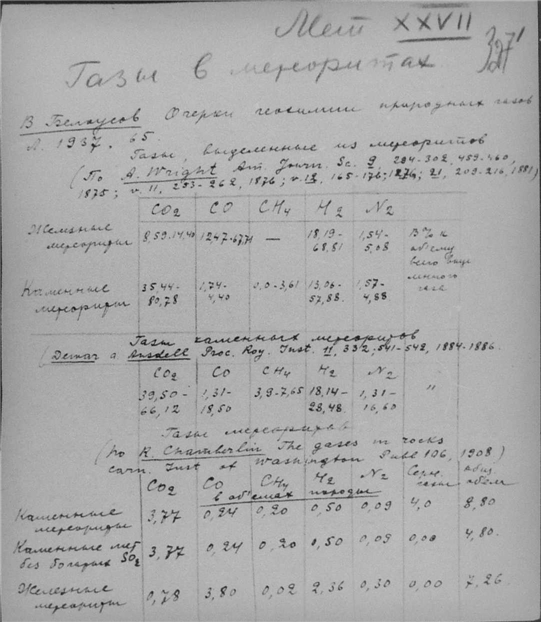 Мет XXVII
327
Газы в метеоритах.
В Белоусов Очерки геохимии природных газов
Л. 1937. 65.
Газы, выделенные из метеоритов
(По A. Wright Am. Journ. Sc. 9, 294-302, 459-460,
1875; v. 11, 253-262, 1876; v. 12, 165-176; 1876; 21, 209-216, 1881)
CO2 CO CH4 H2 N2
Железные метеориты 8,59-14,40 12,47-67,71 — 18,19-68,81 1,54-5,08 В % к объему всего выделенного газа
Каменные метеориты 35,44-80,78 1,74-4,40 0,0-3,61 13,06-57,88. 1,57-4,88
Газы каменных метеоритов
(Dewar a Ansdell Proc. Roy. Inst. 11, 332, 541-542, 1884-1886.
CO2 CO CH4 H2 N2
39,50-66,12 1,31-18,50 3,9-7,65 18,14-28,48. 1,31-16,60 "
Газы метеоритов
(по R. Chamberlin The gases in rocks
Carn. Inst of Washington Publ 106, 1908)
CO2 CO CH4 H2 N2 Серн. газы общ. объем
в объемах породы
Каменные метеориты 3,77 0,24 0,20 0,50 0,09 4,0 8,80
Каменные мет без богатых SO2 3,77 0,24 0,20 0,50 0,09 0,00 4,80.
Железные метеориты 0,78 3,80 0,02 2,36 0,30 0,00 7,26.